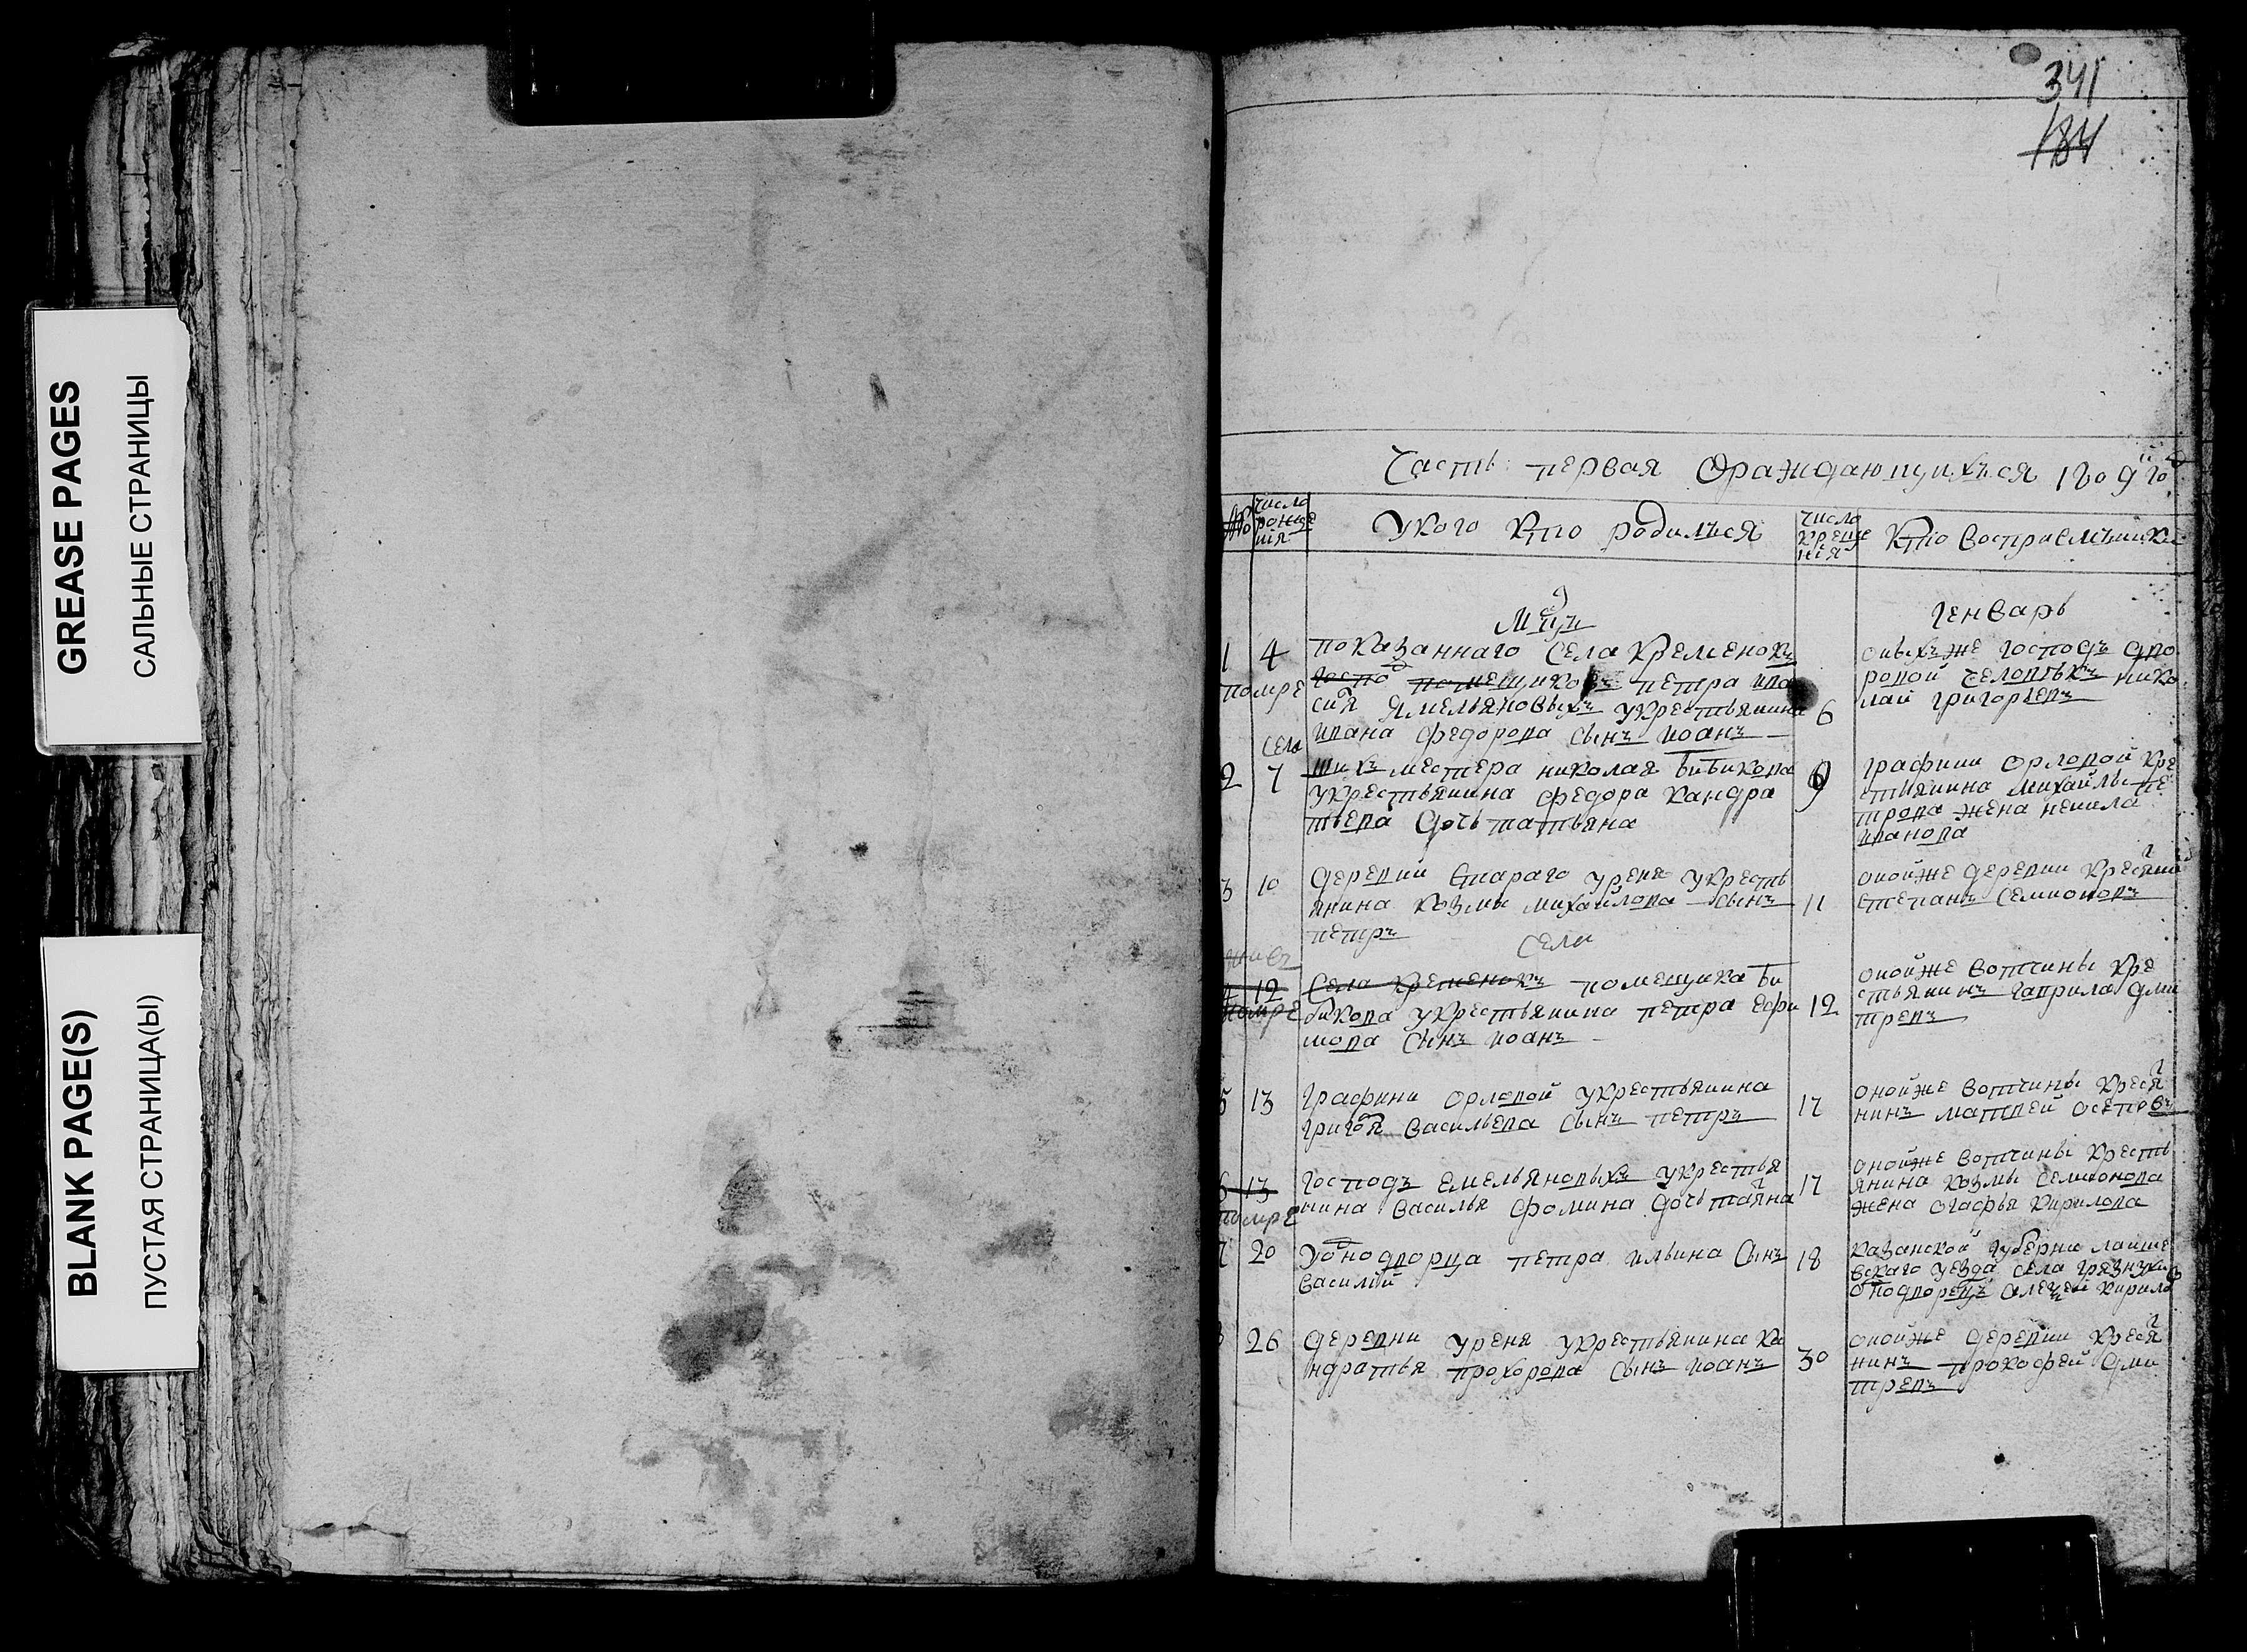 GREASE PAGES
САЛЬНЫЕ СТРАНИЦЫ
BLANK PAGE(S)
ПУСТАЯ СТРАНИЦА(Ы)
341
184
Часть первая Ораждающихъся 1809го
№ число рожде нія
Укого кто родилъся
число креще нія
Кто восприемъники
Мцъ
Генварь
1 4
помре
показаннаго села кременокъ
госпо помещиковъ петра ива
сия Ямельяновыхъ укрестьянина
ивана федорова сынъ иоанъ
6
оныхъже господъ дво
ровой человекъ нико
лай григорьевъ
села
2 7
местера николая бибикова
укрестьянина федора кандра
тьева дочь татьяна
9
графини орловой кре
стьянина михайлы пе
трова жена ненила
иванова
3 10
деревни стараго уреня укресть
янина козмы михайлова сынъ
петръ
11
онойже деревни крестянинъ
степанъ семионовъ
живъ
села
4 12
помре
села кременокъ помещика би
бикова укрестьянина петра ефи
мова сынъ иоанъ
12
онойже вотчины кре
стьянинъ гаврила дми
тревъ
5 13
графини орловой укрестьянина
григоя васильева сынъ петръ
17
онойже вотчины крестя
нинъ матвей осеповъ
6 13
помре
господъ емельяновыхъ укрестья
нина василья фомина дочь татяна
17
онойже вотчины кресть
янина козмы семионова
жена огафья кирилова
7 20
Уоднодворца петра ильина сынъ
василий
18
казанской губерни лаише
вскаго уезда села
однодворецъ алекей кирилов
26
деревни уреня укрестьянина ка
ндратья прохорова сынъ иоанъ
30
онойже деревни крестя
нинъ прокофей дми
тревъ